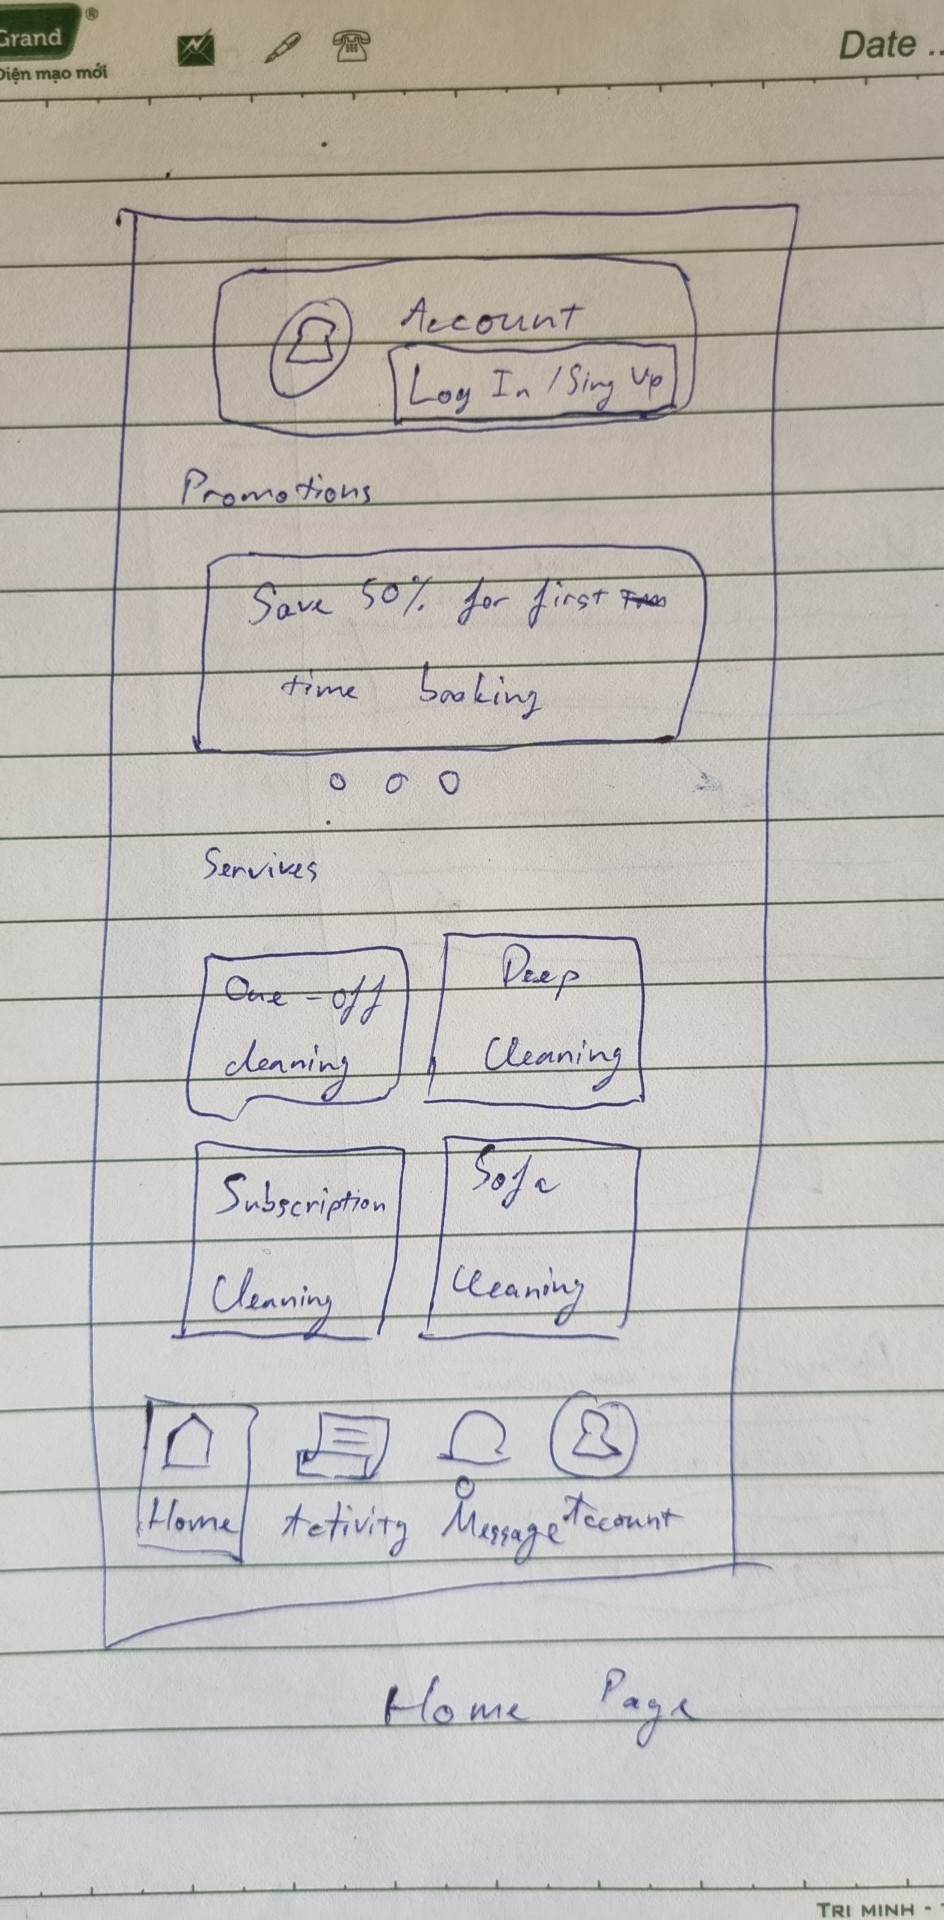 Grand ®
Diện mạo mới
Date ..
Account
Log In / Sing Up
Promotions
Save 50% for first
time booking
Servives
One-off
cleaning
Deep
Cleaning
Subscription
Cleaning
Sofa
Cleaning
Home
Activity
Message
Account
Home Page
TRI MINH -